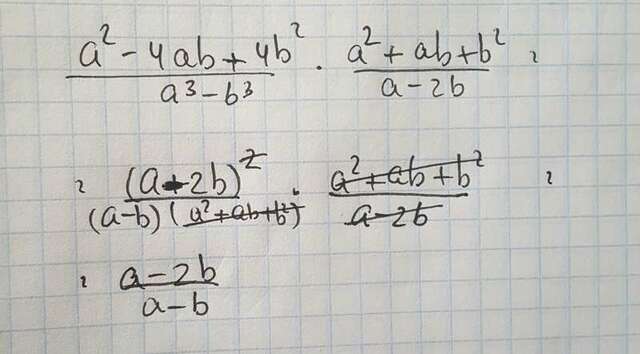 a² - 4ab + 4b² / a³ - b³ · a² + ab + b² / a - 2b =
= (a - 2b)² / (a-b)(a² + ab + b²) · a² + ab + b² / a - 2b =
= a - 2b / a - b